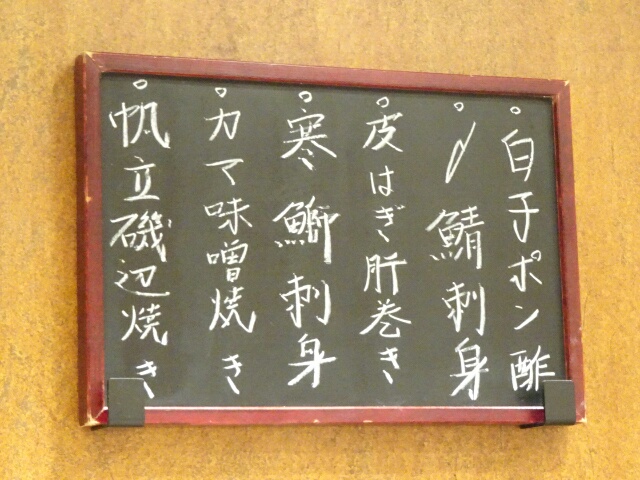 。白子ポン酢
。〆鯖刺身
。皮はぎ肝巻き
。寒鰤刺身
。カマ味噌焼き
。帆立磯辺焼き